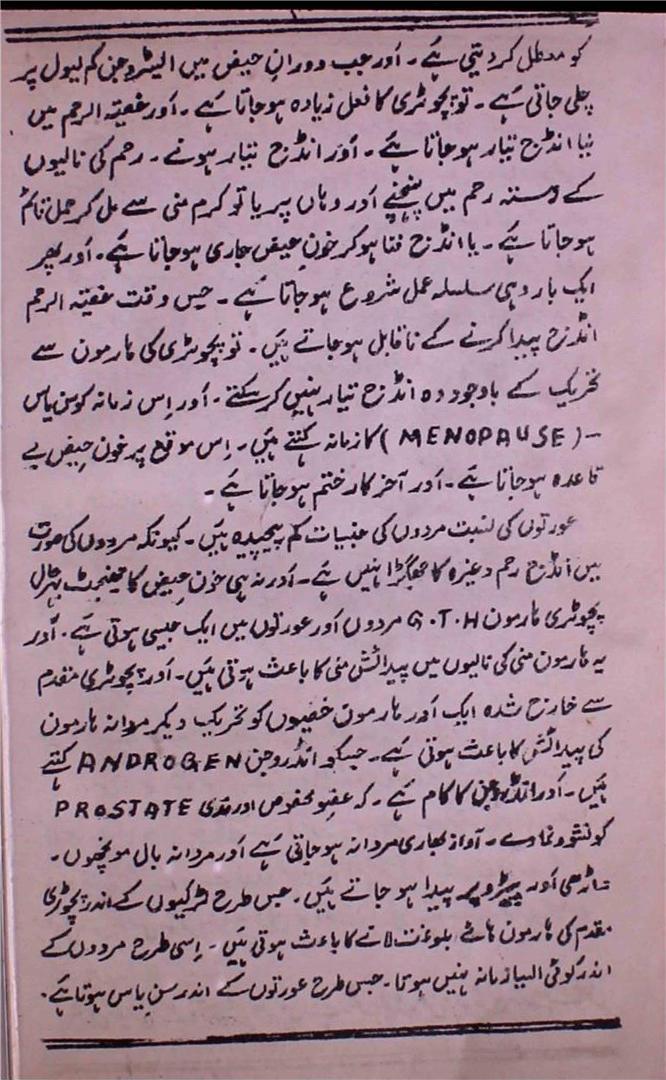 کو معطل کر دیتی ہے۔ اور جب دورانِ حیض میں الیسٹروجن کم لیول پر
چلی جاتی ہے۔ تو پچوٹری کا فعل زیادہ ہو جاتا ہے۔ اور خصیتہ الرحم میں
نیا انڈرح تیار ہو جاتا ہے۔ اور انڈرح تیار ہونے۔ رحم کی نالیوں
کے رستہ رحم میں پہنچنے اور وہاں پر یا تو کرم منی سے مل کر حمل قائم
ہو جاتا ہے۔ یا انڈرح فنا ہو کر خون حیض جاری ہو جاتا ہے۔ اور پھر
ایک بار وہی سلسلہ عمل شروع ہو جاتا ہے۔ جس وقت خصیتہ الرحم
انڈرح پیدا کرنے کے ناقابل ہو جاتے ہیں۔ تو پچوٹری کی ہارمون سے
تحریک کے باوجود وہ انڈرح تیار نہیں کر سکتے۔ اور اس زمانہ کو سن یاس
۔ (MENOPAUSE) کا زمانہ کہتے ہیں۔ اس موقع پر خون حیض بے
قاعدہ ہو جاتا ہے۔ اور آخر کار ختم ہو جاتا ہے۔
عورتوں کی نسبت مردوں کی جنسیات کم پیچیدہ ہیں۔ کیونکہ مردوں کی صورت
میں انڈرح رحم وغیرہ کا جھگڑا نہیں ہے۔ اور نہ ہی خون حیض کا جھنجٹ بہرحال
پچوٹری ہارمون G.T.H مردوں اور عورتوں میں ایک جیسی ہوتی ہے۔ اور
یہ ہارمون منی کی نالیوں میں پیدائش منی کا باعث ہوتی ہیں۔ اور پچوٹری مقدم
سے خارج شدہ ایک اور ہارمون خصیوں کو تحریک دیکر مردانہ ہارمون
کی پیدائش کا باعث ہوتی ہے۔ جسکو انڈروجن ANDROGEN کہتے
ہیں۔ اور انڈروجن کا کام ہے۔ کہ عضو مخصوص اور غدی PROSTATE
کو نشوونما دے۔ آواز بھاری مردانہ ہو جاتی ہے اور مردانہ بال مونچھوں۔
داڑھی اور پیڑو پر پیدا ہو جاتے ہیں۔ جس طرح لڑکیوں کے اندر پچوٹری
مقدم کی ہارمون ہائے بلوغت لانے کا باعث ہوتی ہیں۔ اسی طرح مردوں کے
اندر کوئی ایسا زمانہ نہیں ہوتا۔ جس طرح عورتوں کے اندر سن یاس ہوتا ہے۔